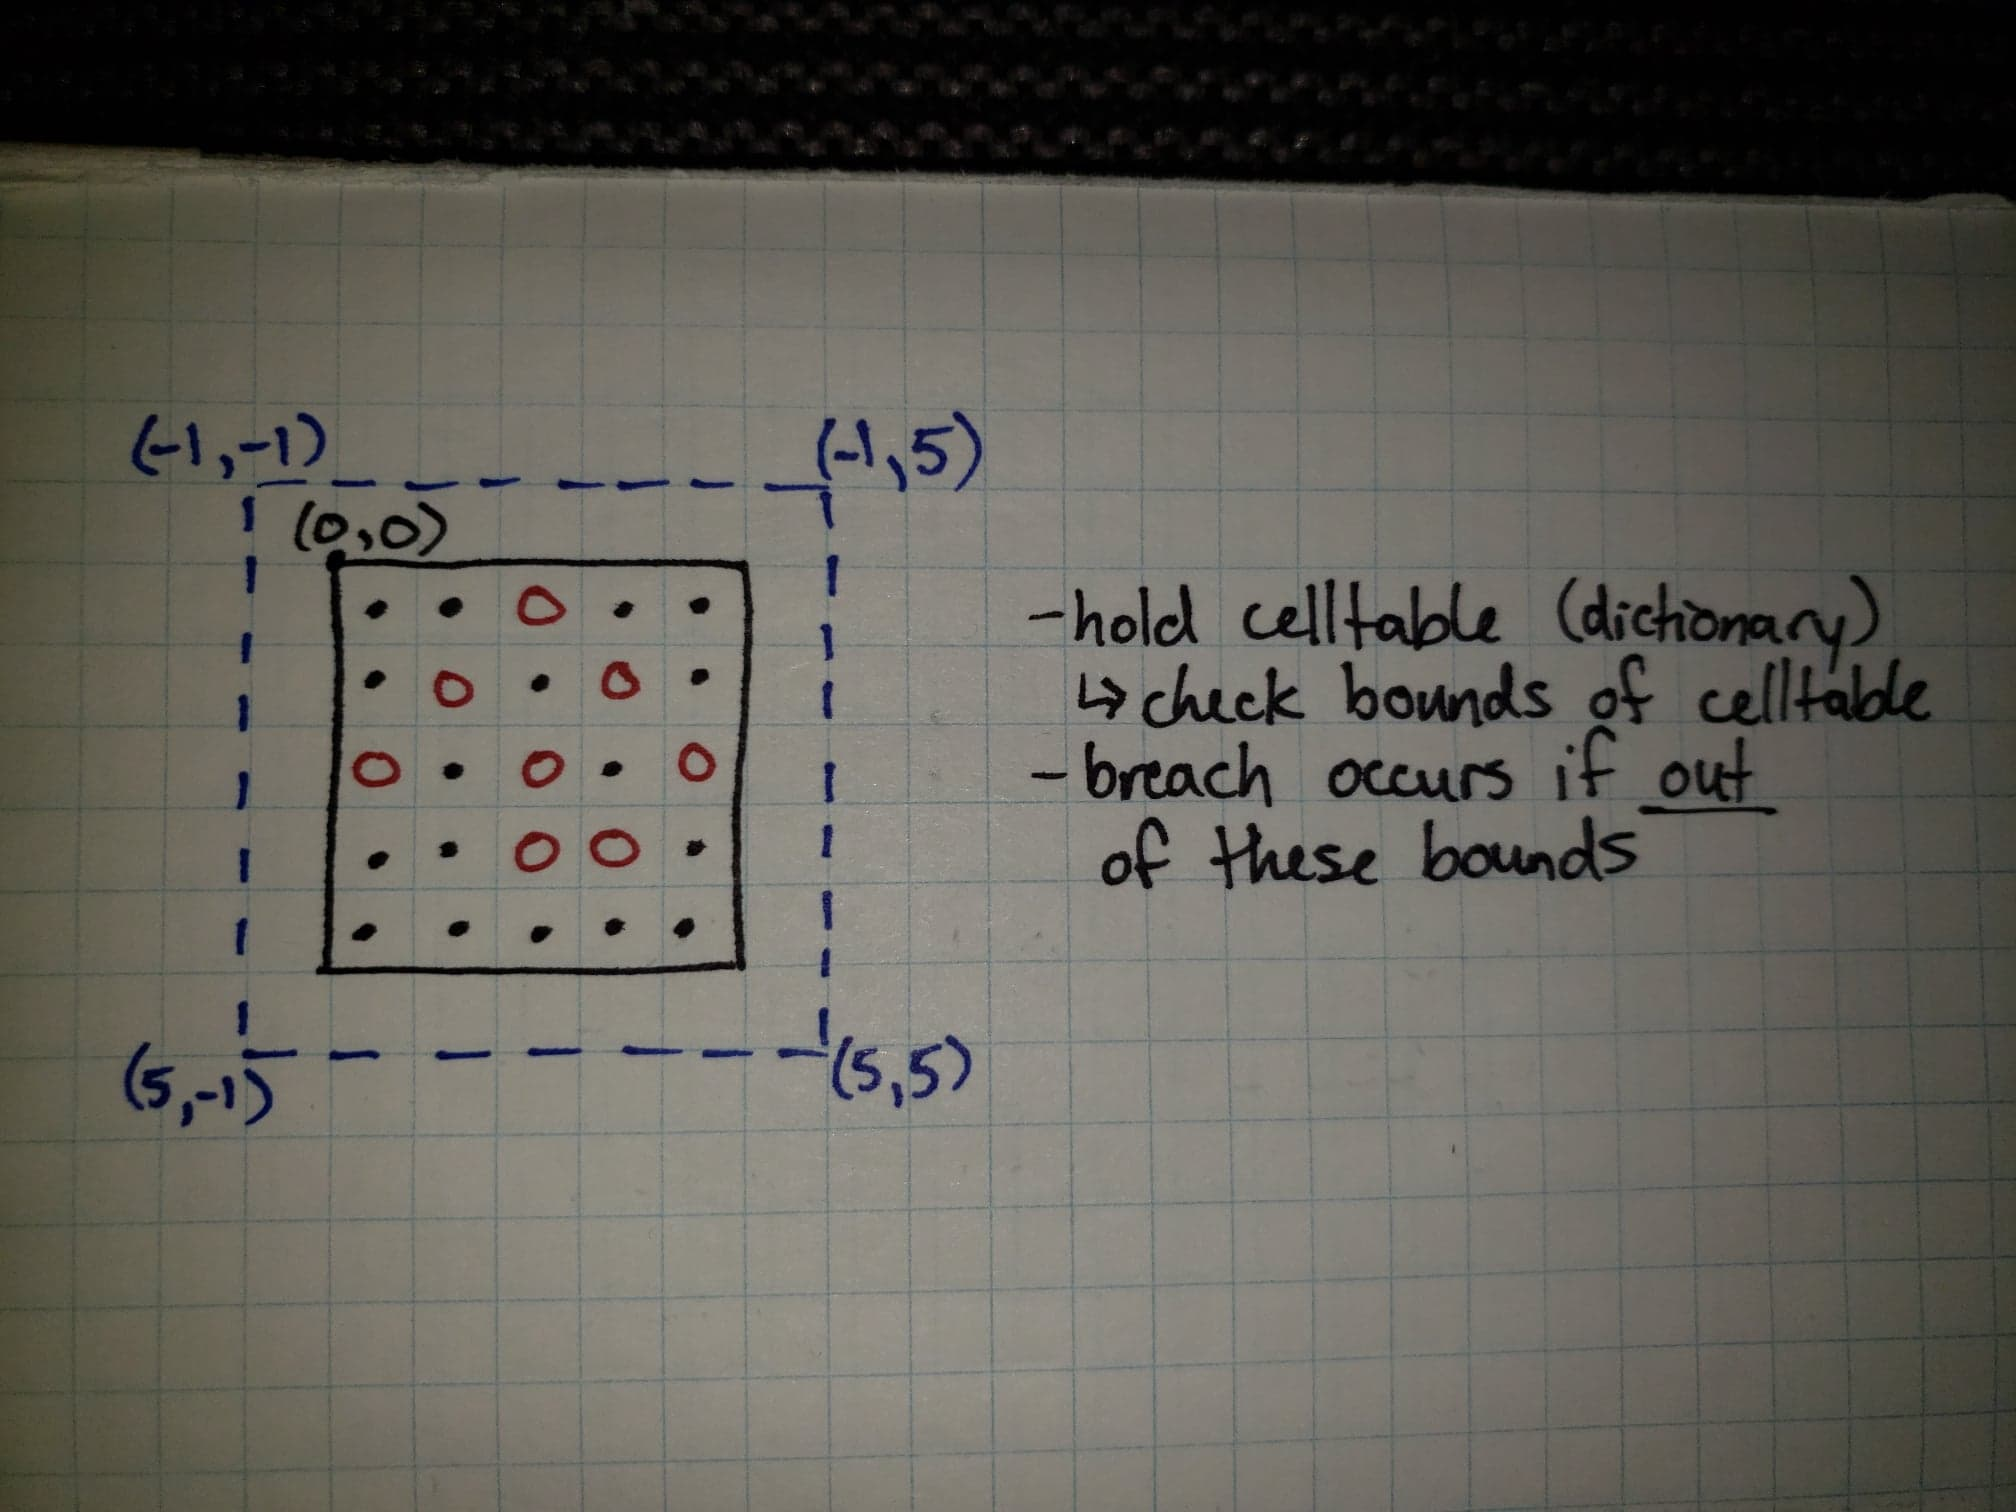 (-1,-1)
(-1,5)
(0,0)
-hold celltable (dictionary)
↳ check bounds of celltable
- breach occurs if out
of these bounds
(5,-1)
(5,5)